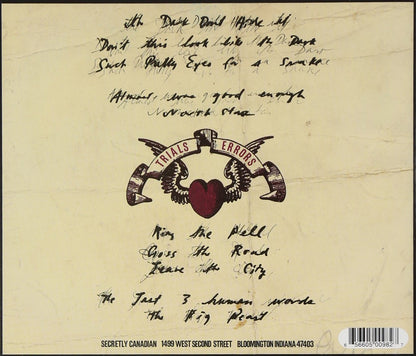 The Dark Don't Hide It
Don't This Look Like the Dark
Such Pretty Eyes for a Snake
Almost was good enough
North Star
TRIALS ERRORS
Ring the Bell
Cross the Road
Leave the City
The Last 3 human words
The Big Beast
SECRETLY CANADIAN 1499 WEST SECOND STREET BLOOMINGTON INDIANA 47403
56605 00982